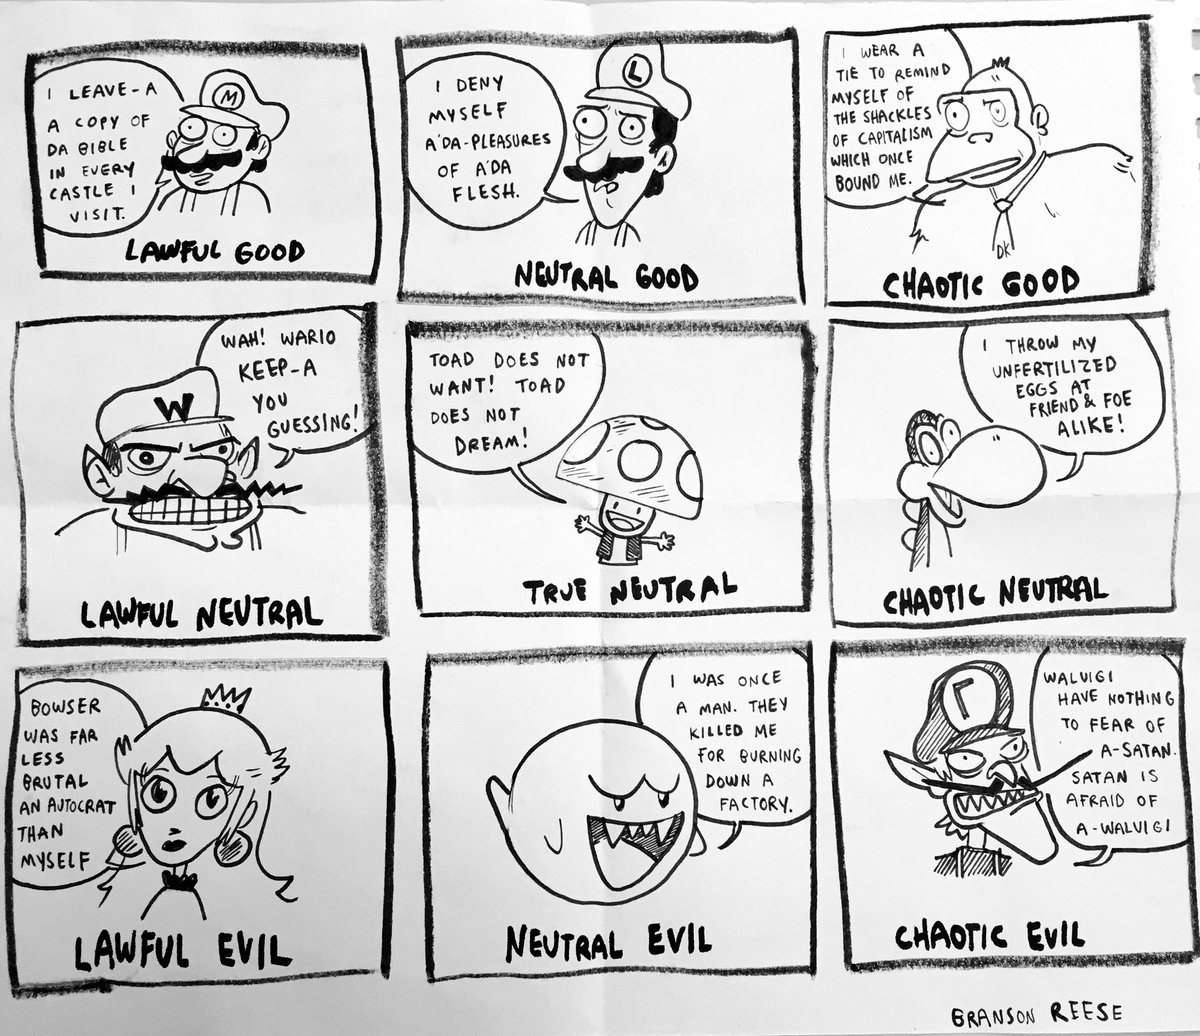 I LEAVE-A
A COPY OF
DA BIBLE
IN EVERY
CASTLE I
VISIT.
M
LAWFUL GOOD
I DENY
MYSELF
A'DA-PLEASURES
OF A'DA
FLESH.
L
NEUTRAL GOOD
I WEAR A
TIE TO REMIND
MYSELF OF
THE SHACKLES
OF CAPITALISM
WHICH ONCE
BOUND ME.
DK
CHAOTIC GOOD
WAH! WARIO
KEEP-A
YOU
GUESSING!
W
LAWFUL NEUTRAL
TOAD DOES NOT
WANT! TOAD
DOES NOT
DREAM!
TRUE NEUTRAL
I THROW MY
UNFERTILIZED
EGGS AT
FRIEND & FOE
ALIKE!
CHAOTIC NEUTRAL
BOWSER
WAS FAR
LESS
BRUTAL
AN AUTOCRAT
THAN
MYSELF
LAWFUL EVIL
I WAS ONCE
A MAN. THEY
KILLED ME
FOR BURNING
DOWN A
FACTORY.
NEUTRAL EVIL
WALUIGI
HAVE NOTHING
TO FEAR OF
A-SATAN.
SATAN IS
AFRAID OF
A-WALUIGI
Γ
CHAOTIC EVIL
BRANSON REESE